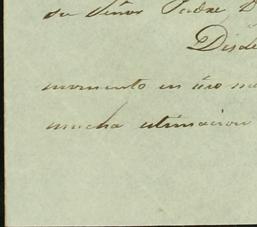 su Señor Padre, D
Desde
momento en
mucha estimacion